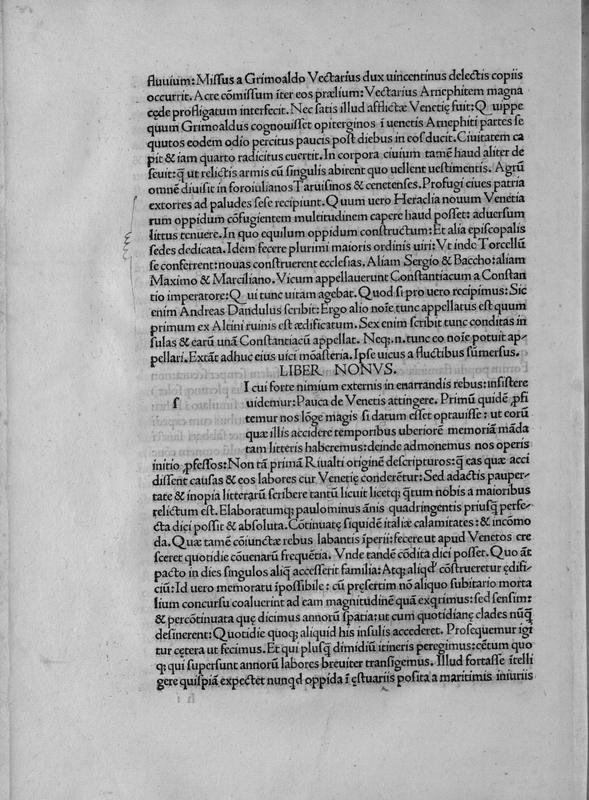 fluuium: Missus a Grimoaldo Vectarius dux uincentinus delectis copiis
occurrit. Acre cōmissum iter eos prælium: Vectarius Arnephitem magna
cęde profligatum interfecit. Nec satis illud afflictæ Venetię fuit: Quippe
quum Grimoaldus cognouisset opiterginos ī uenetis Arnephiti partes se
quutos eodem odio percitus paucis post diebus in eos ducit. Ciuitatem ca
pit & iam quarto radicitus euertit. In corpora ciuium tamē haud aliter de
seuit: q̄ ut relictis armis cū singulis abirent quo uellent uestimentis. Agrū
omnē diuisit in foroiulianos Taruisinos & cenetenses. Profugi ciues patria
extorres ad paludes sese recipiunt. Quum uero Heraclia nouum Venetia
rum oppidum cōfugientem multitudinem capere haud posset: aduersum
littus tenuere. In quo equilum oppidum constructum: Et alia episcopalis
sedes dedicata. Idem fecere plurimi maioris ordinis uiri: Vt inde Torcellū
se conferrent: nouas construerent ecclesias. Aliam Sergio & Baccho: aliam
Maximo & Marciliano. Vicum appellauerunt Constantiacum a Constan
tio imperatore: Qui tunc uitam agebat. Quod si pro uero recipimus: Sic
enim Andreas Dandulus scribit: Ergo alio noīe tunc appellatus est quum
primum ex Altini ruinis est ædificatum. Sex enim scribit tunc conditas in
sulas & earū unā Constantiacū appellat. Neq;.n. tunc eo noīe potuit ap-
pellari. Extāt adhuc eius uici mōasteria. Ipse uicus a fluctibus sūmersus.
LIBER NONVS.
f I cui forte nimium externis in enarrandis rebus: insistere
uidemur: Pauca de Venetis attingere. Primū quidē ꝓfi
temur nos lōge magis si datum esset optauisse: ut eorū
quæ illis accidere temporibus uberiorē memoriā māda
tam litteris haberemus: deinde admonemus nos operis
initio ꝓfessos: Non tā primā Riualti originē descripturos: q̄ eas quæ acci
dissent causas & eos labores cur Venetię conderētur: Sed adactis pauper-
tate & inopia litterarū scribere tantū licuit licetq; q̄tum nobis a maioribus
relictum est. Elaboratumq; paulominus ānis quadringentis priusq̄ perfe-
cta dici possit & absoluta. Cōtinuatę siquidē italiæ calamitates: & incōmo
da. Quæ tamē cōiunctæ rebus labantis īperii: fecere ut apud Venetos cre
sceret quotidie cōuenarū frequētia. Vnde tandē cōdita dici posset. Quo āt
pacto in dies singulos aliq̄ accesserit familia: Atq; aliqd' cōstrueretur ędifi-
ciū: Id uero memoratu īpossibile: cū pręsertim nō aliquo subitario morta
lium concursu coaluerint ad eam magnitudinē quā exq̄rimus: sed sensim:
& percōtinuata quę dicimus annorū spatia: ut cum quotidianę clades nūq̄
desinerent: Quotidie quoq; aliquid his insulis accederet. Prosequemur igi
tur cętera ut fecimus. Et qui plusq̄ dimidiū itineris peregimus: cētum quo
q; qui supersunt annorū labores breuiter transigemus. Illud fortasse ītelli
gere quispiā expectet nunqd oppida ī ęstuariis posita a maritimis iniuriis